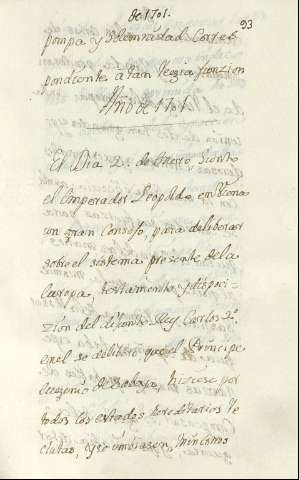 de 1701.
93
pompa y solemnidad Corres
pondiente a tan Regia funzion
Año de 1701.
El Dia 2. de Enero, Junto
el Emperador Leopoldo, en Viena
un gran Consejo, para deliberar
sobre el sistema presente de la
Europa, testamento y disposi-
zión del difunto Rey Carlos 2º
en el se delibro que el Principe
eugenio de Saboya, hiziese por
todos los estados hereditarios Re
clutas, y se embiasen Ministros